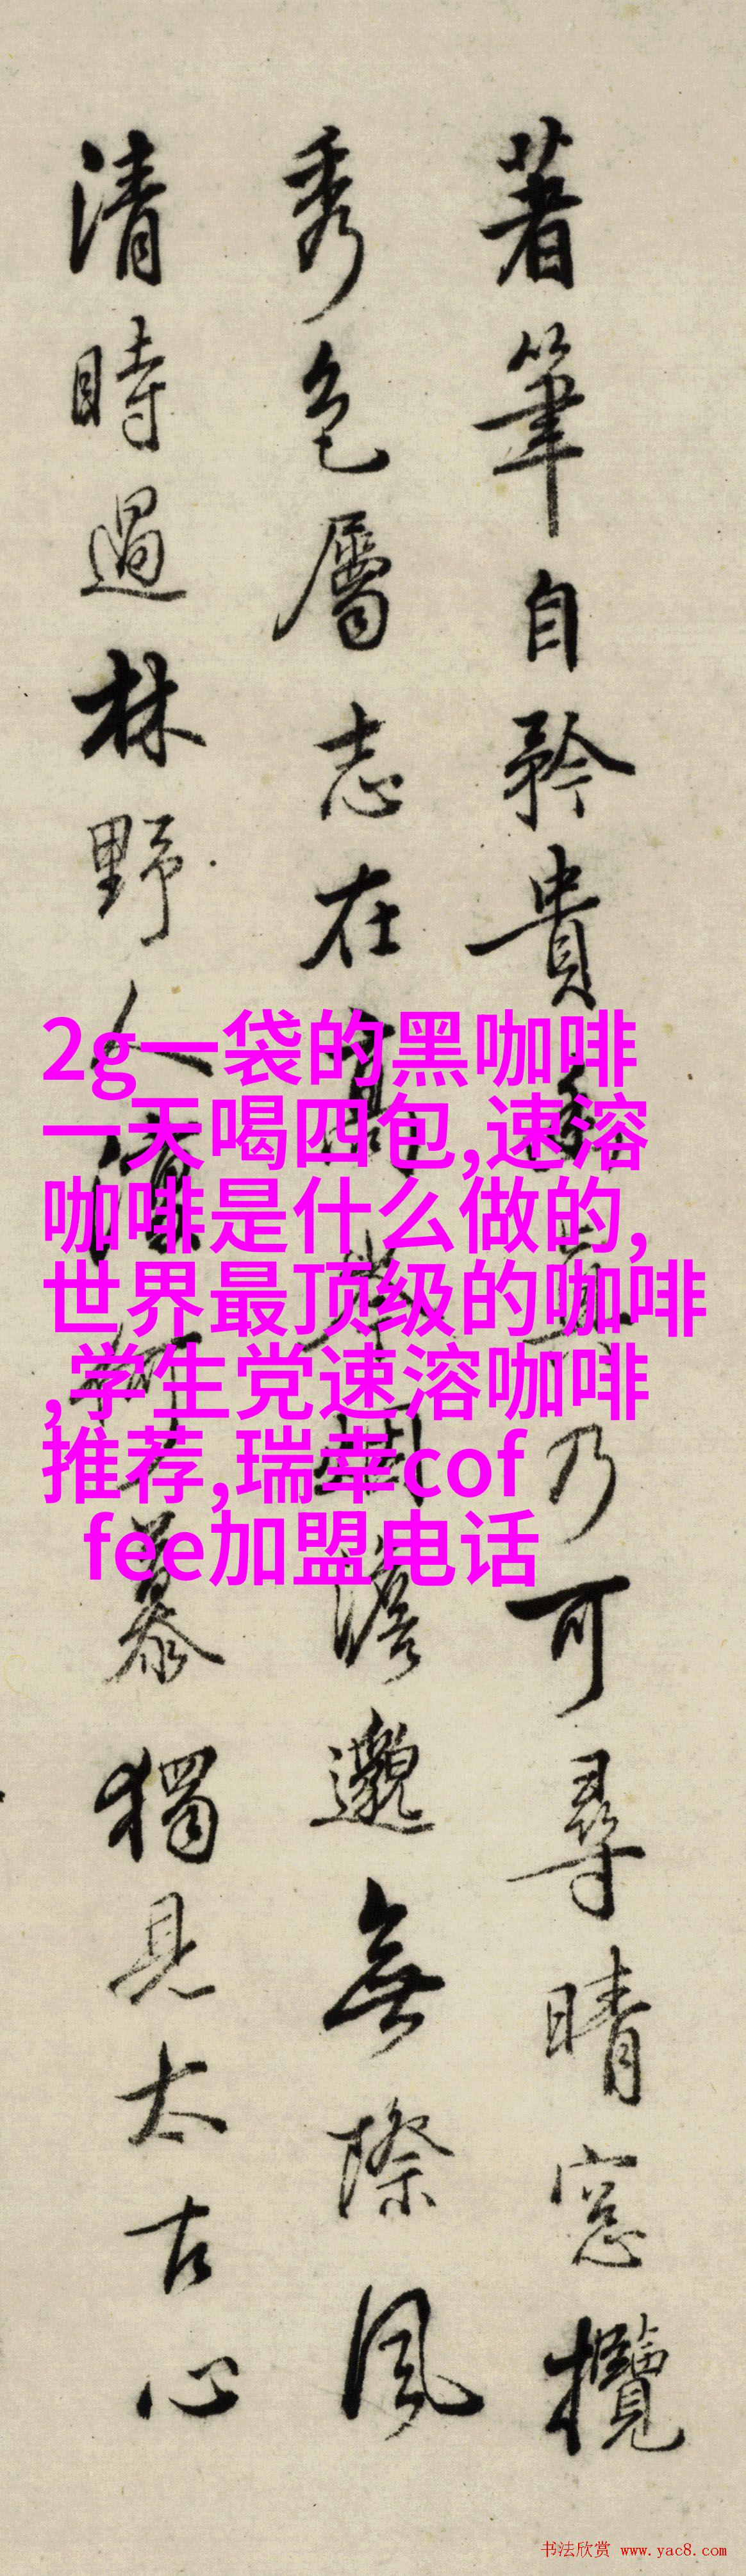 著筆自矜貴乃可尋晴窓攬
秀色屬志在高閒澹邈無際風
清時過林野人慕獨見太古心
2g一袋的黑咖啡
一天喝四包,速溶
咖啡是什么做的,
世界最顶级的咖啡
,学生党速溶咖啡
推荐,瑞幸cof
fee加盟电话
书法欣赏 www.yac8.com